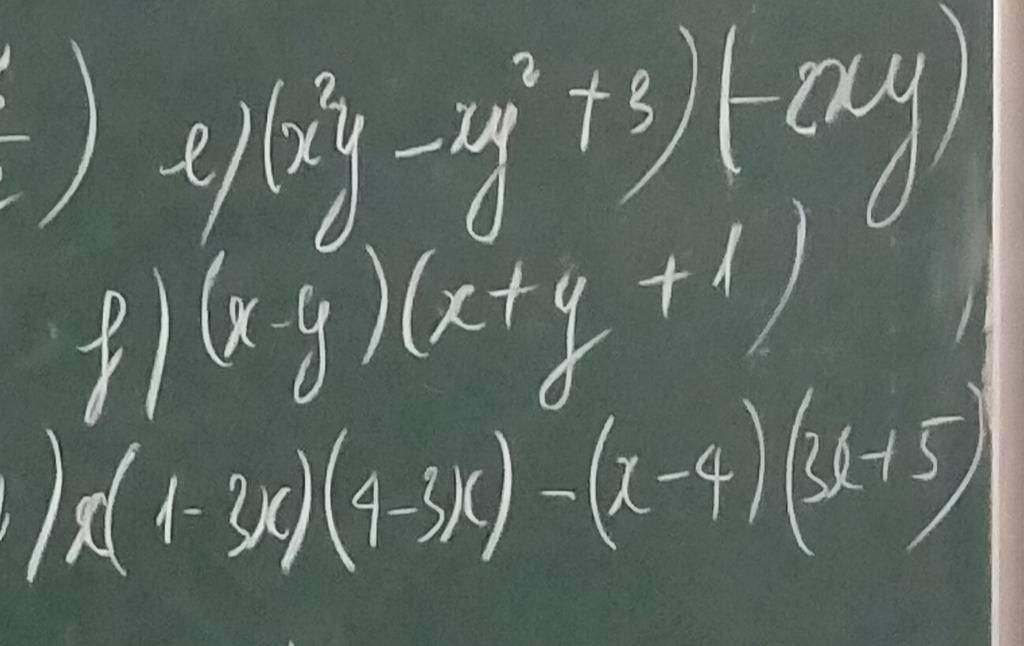 ) e) (x²y - xy² + 3) (-2xy)
f) (x-y)(x+y+1)
) x(1-3x)(4-3x) - (x-4)(3x+5)